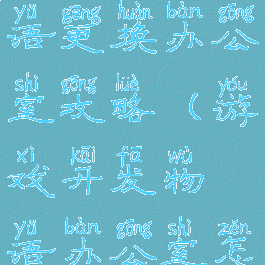 yǔ gēng huàn bàn gōng
语更换办公
shì gōng lüè yóu
室攻略（游
xì kāi fā wù
戏开发物
yǔ bàn gōng shì zěn
语办公室怎